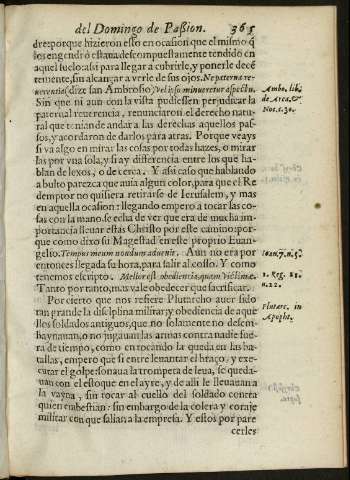 del Domingo de Paßion. 365
dre: porque hizieron esto en ocasion que el mismo q̃
los engendró estaua descompuestamente tendido en
aquel suelo: assi para llegar a cubrirle, y ponerle decẽ
temente, sin alcançar a verle de sus ojos. Ne paterna re-
uerentia (dize san Ambrosio) vel ipso minueretur aspectu.
Sin que ni aun con la vista pudiessen perjudicar la
paternal reuerencia, renunciaron el derecho natu-
ral que tenian de andar a las derechas aquellos pas-
sos, y acordaron de darlos para atras. Porque veays
si va algo en mirar las cosas por todas hazes, o mirar
las por vna sola, y si ay differencia entre los que ha-
blan de lexos, o de cerca. Y assi caso que hablando
a bulto parezca que auia algun color, para que el Re
demptor no quisiera retirarse de Ierusalem, y mas
en aquella ocasion: llegando empero a tocar las co-
sas con la mano, se echa de ver que era de mucha im-
portancia lleuar estas Christo por este camino: por-
que como dixo su Magestad en este proprio Euan-
gelio. Tempus meum nondum aduenit. Aun no era por
entonces llegada su hora, para salir al cosso. Y como
tenemos escripto. Melior est obediencia, quam victimæ.
Tanto por tanto, mas vale obedecer que sacrificar.
Por cierto que nos refiere Plutarcho auer sido
tan grande la disciplina militar, y obediencia de aque
llos soldados antiguos, que no solamente no desem-
baynauan, o no jugauan las armas contra nadie fue-
ra de tiempo, como en tocando la queda en las ba-
tallas, empero que si entre leuantar el braço, y exe-
cutar el golpe sonaua la trompeta de leua, se queda-
uan con el estoque en el ayre, y de alli le lleuauan a
la vayna, sin tocar al cuello del soldado contra
quien embestian: sin embargo de la colera y coraje
militar con que salian a la empresa. Y estos por pare
cerles
Ambr. lib.
de Arca, &
Noe. c. 30.
Ioan. 7. n. 6.
1. Reg. 15.
n. 22.
Plutarc. in
Apopht.